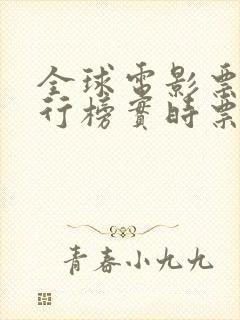 全球電影票
行榜實時票
青春小九九